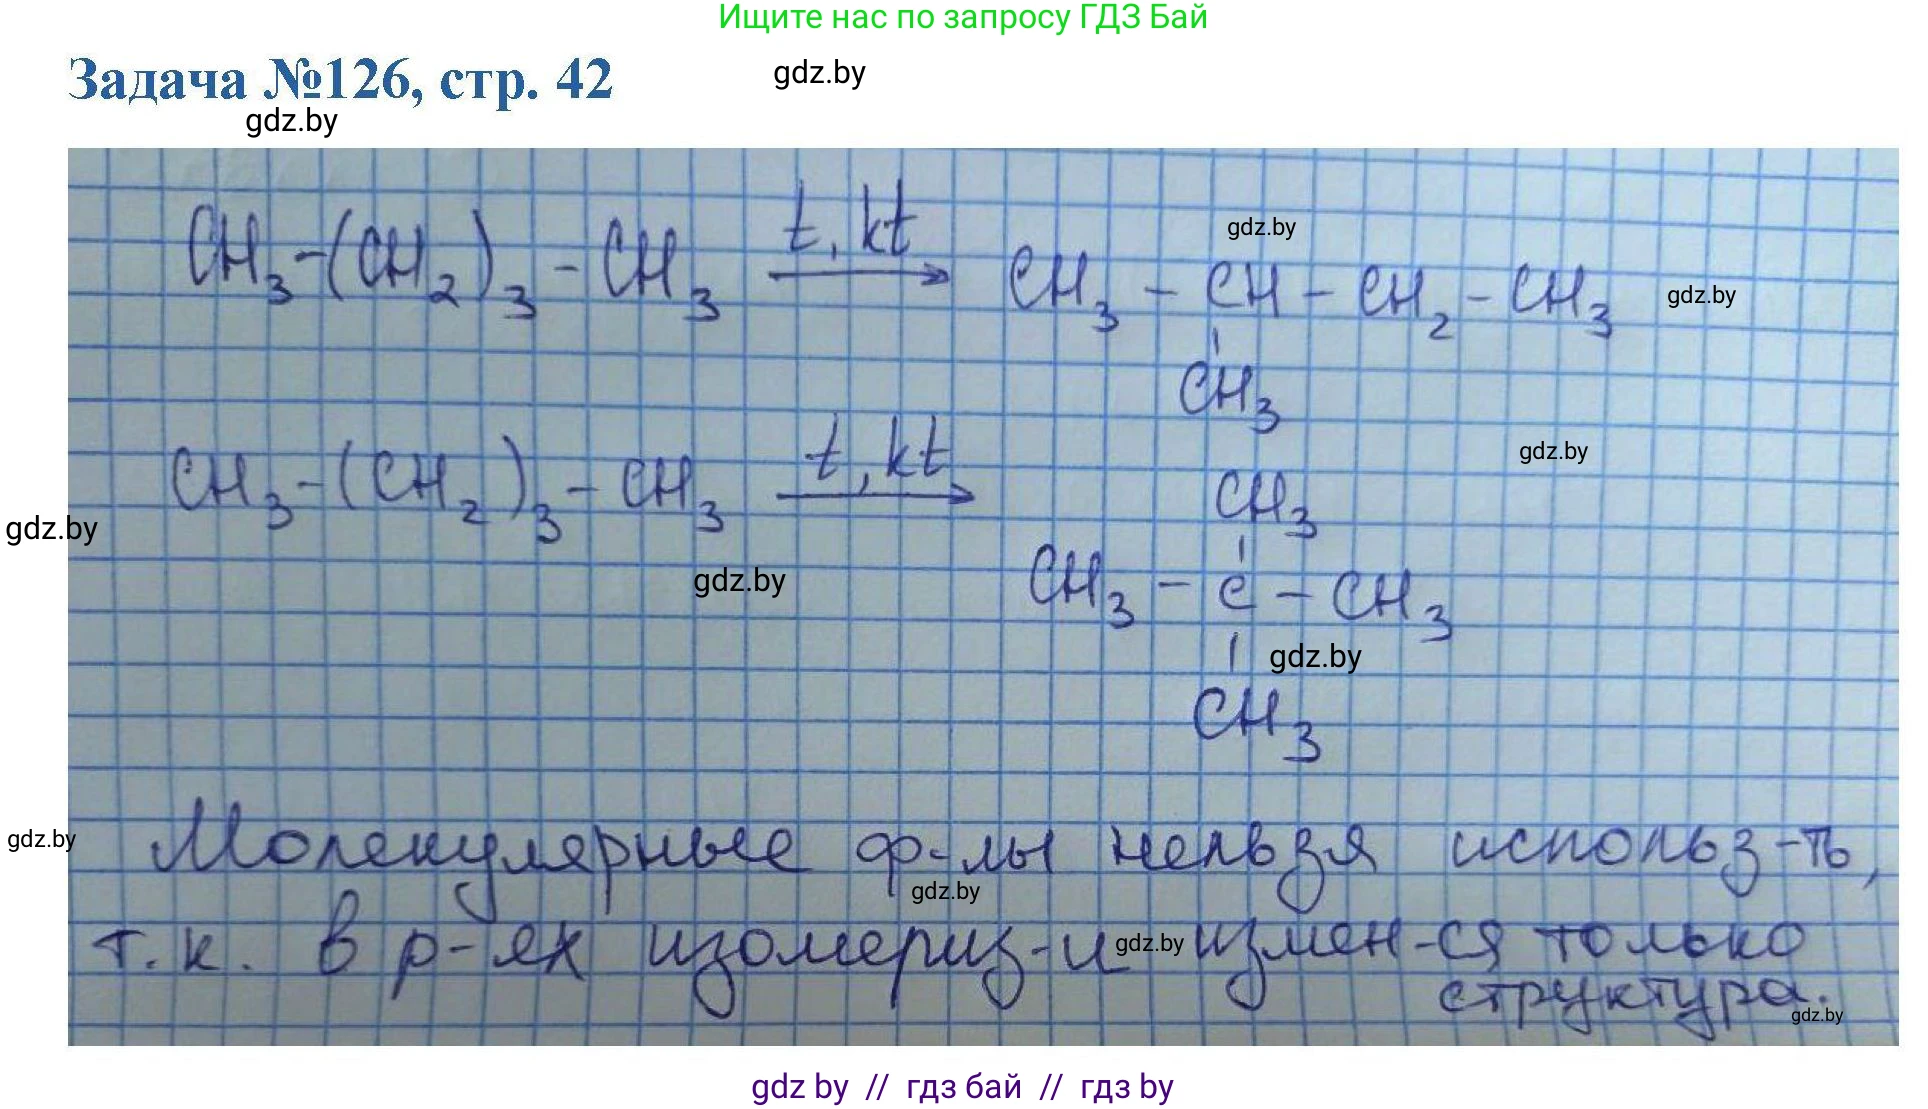 Ищите нас по запросу ГДЗ Бай
Задача №126, стр. 42
gdz.by
gdz.by
CH3-(CH2)3-CH3 t, kt → CH3-CH-CH2-CH3
gdz.by
gdz.by
CH3
gdz.by
CH3-(CH2)3-CH3 t, kt →
CH3
gdz.by
gdz.by
CH3-C-CH3
gdz.by
CH3
gdz.by
Молекулярные ф-лы нельзя использ-ть,
gdz.by
т.к. в р-ях изомериз-и измен-ся только
gdz.by
структура.
gdz.by
gdz by // гдз бай // гдз by